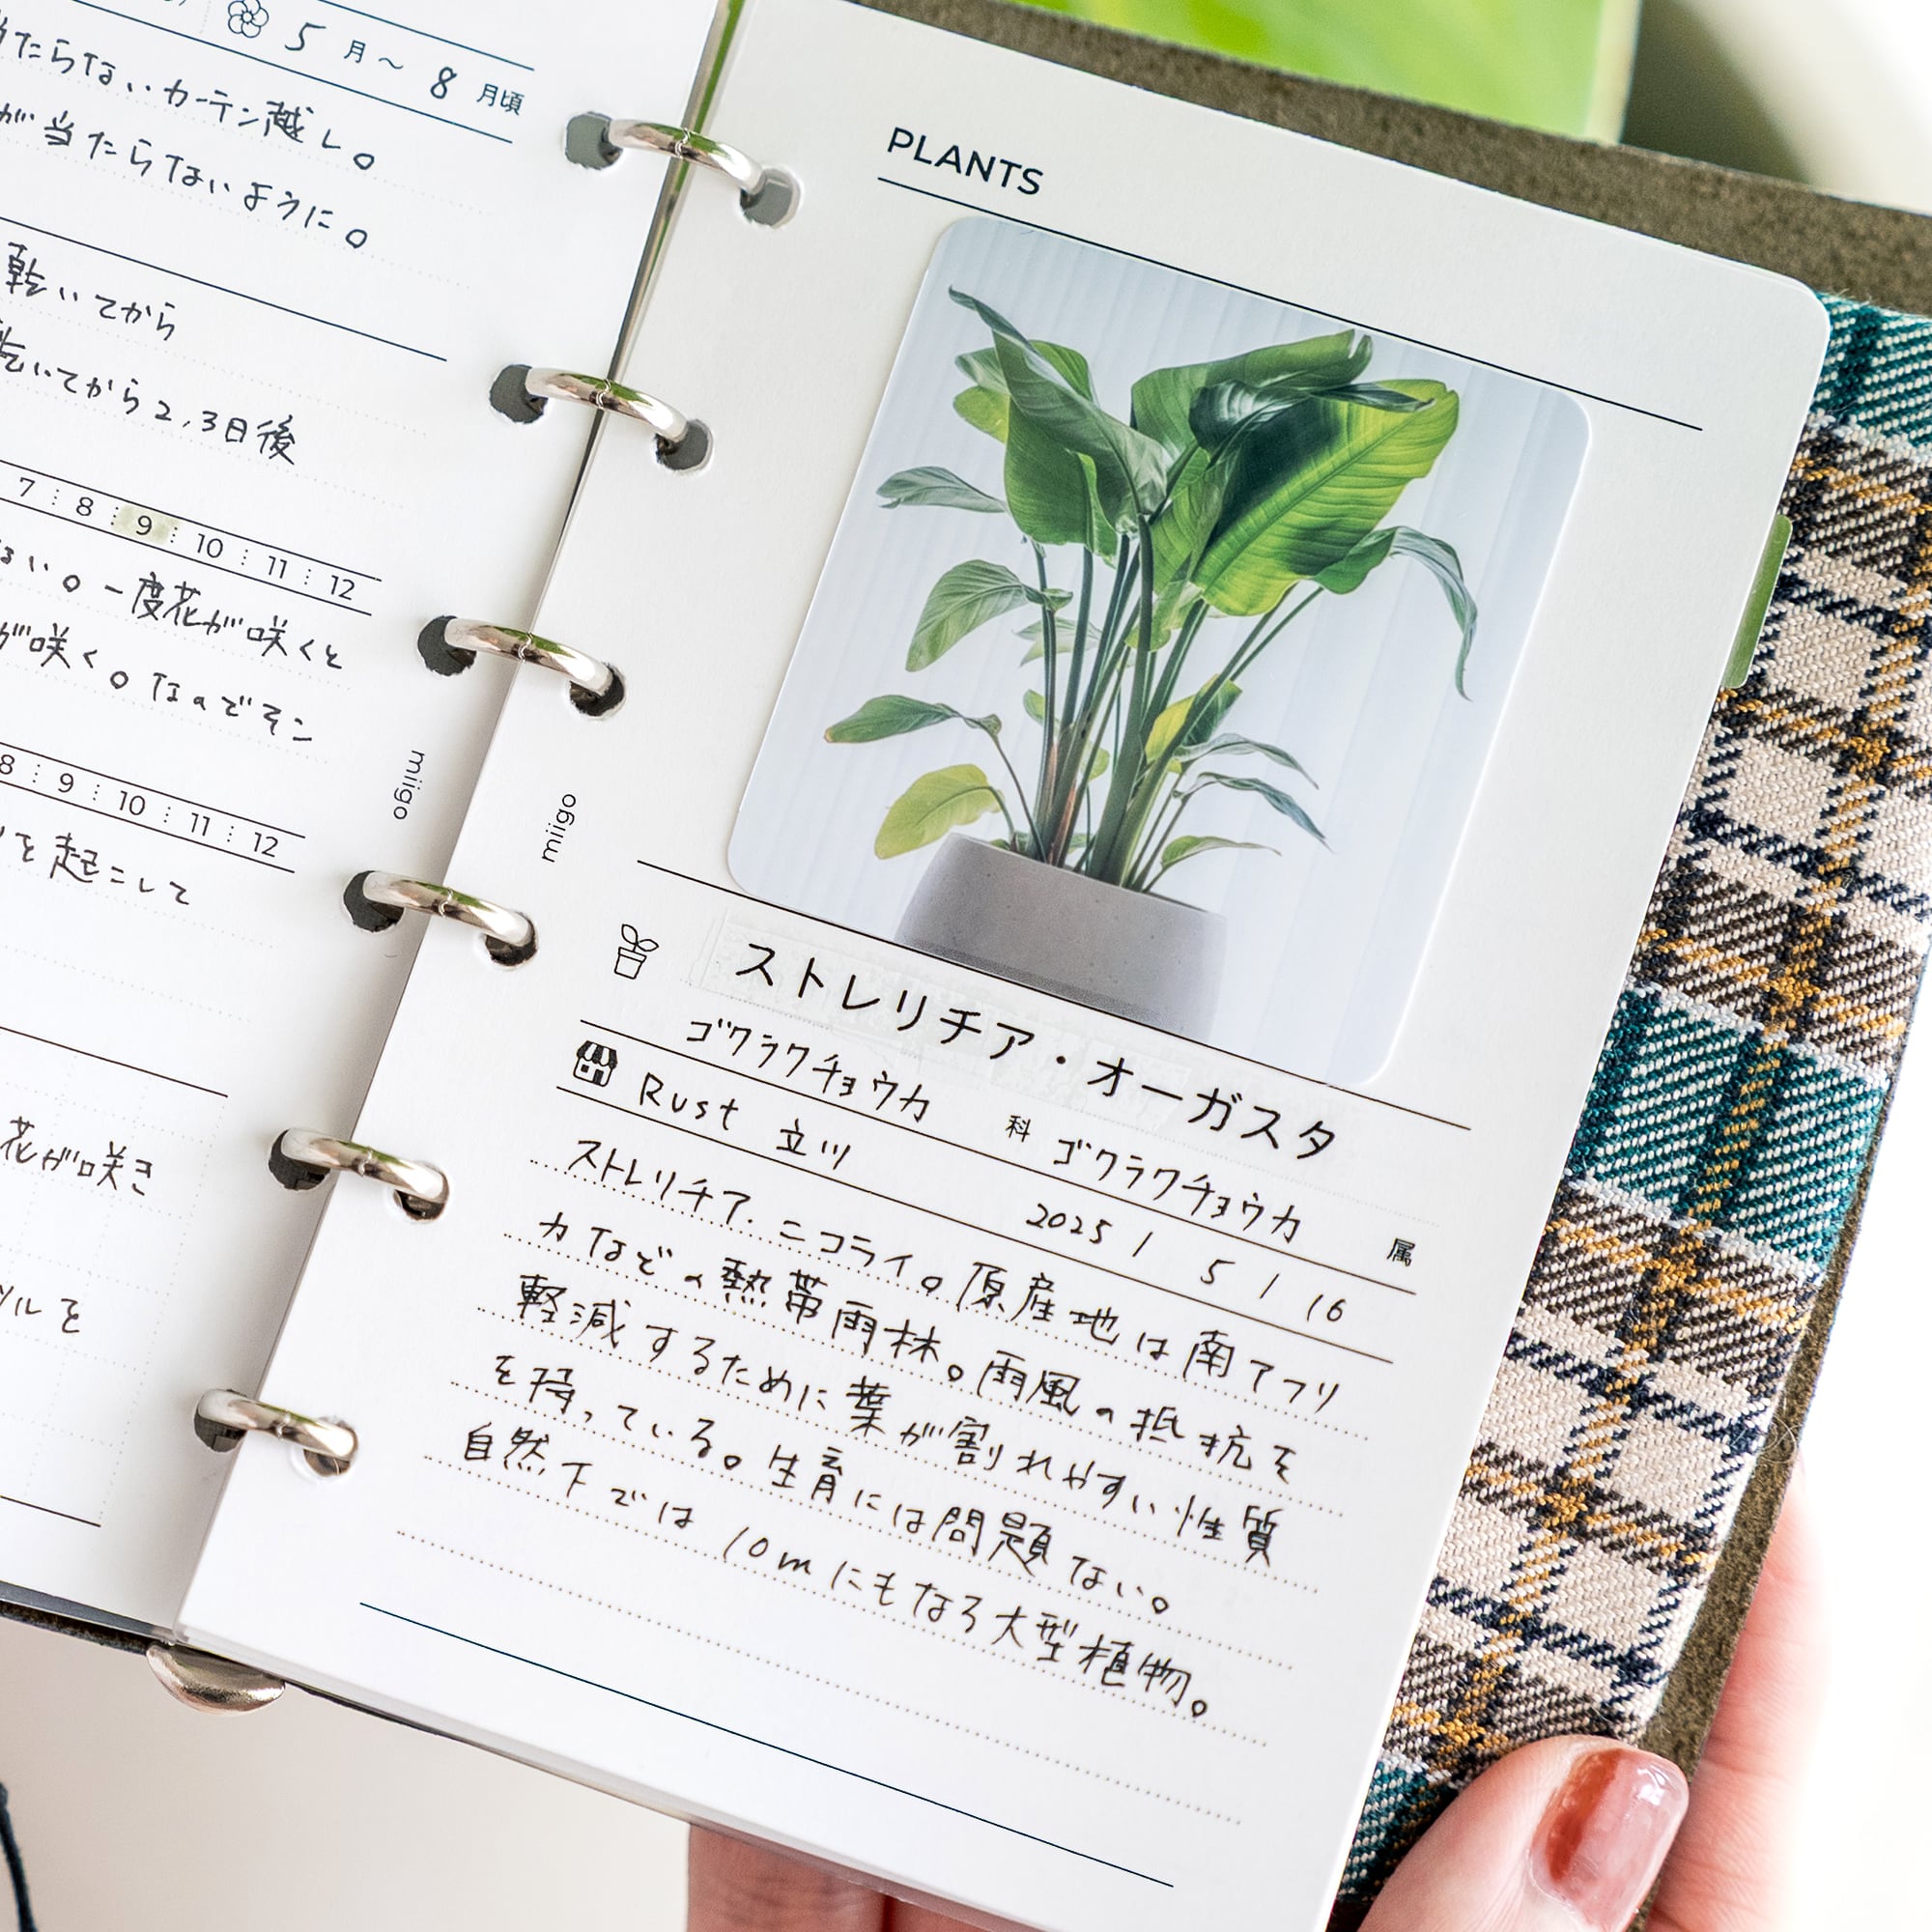 5 月～ 8 月頃
当たらないカーテン越し。
が当たらないように。
乾いてから
乾いてから2,3日後
7 8 9 10 11 12
ない。一度花が咲くと
が咲く。なのでそこ
8 9 10 11 12
を起こして
花が咲き
ツルを
miigo
PLANTS
miigo
ストレリチア・オーガスタ
ゴクラクチョウカ 科 ゴクラクチョウカ 属
Rust 立川 2025 / 5 / 16
ストレリチア.ニコライ。原産地は南アフリ
カなどの熱帯雨林。雨風の抵抗を
軽減するために葉が割れやすい性質
を持っている。生育には問題ない。
自然下では10mにもなる大型植物。